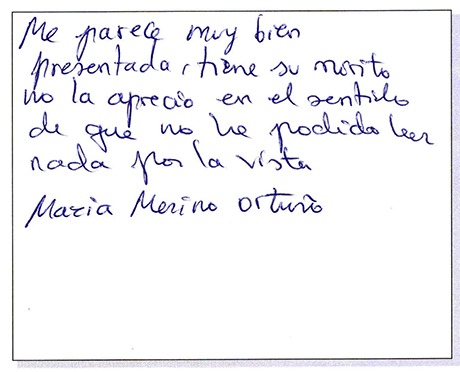 Me parece muy bien
presentada, tiene su mérito
no la aprecio en el sentido
de que no he podido leer
nada por la vista
Maria Merino Ortuño